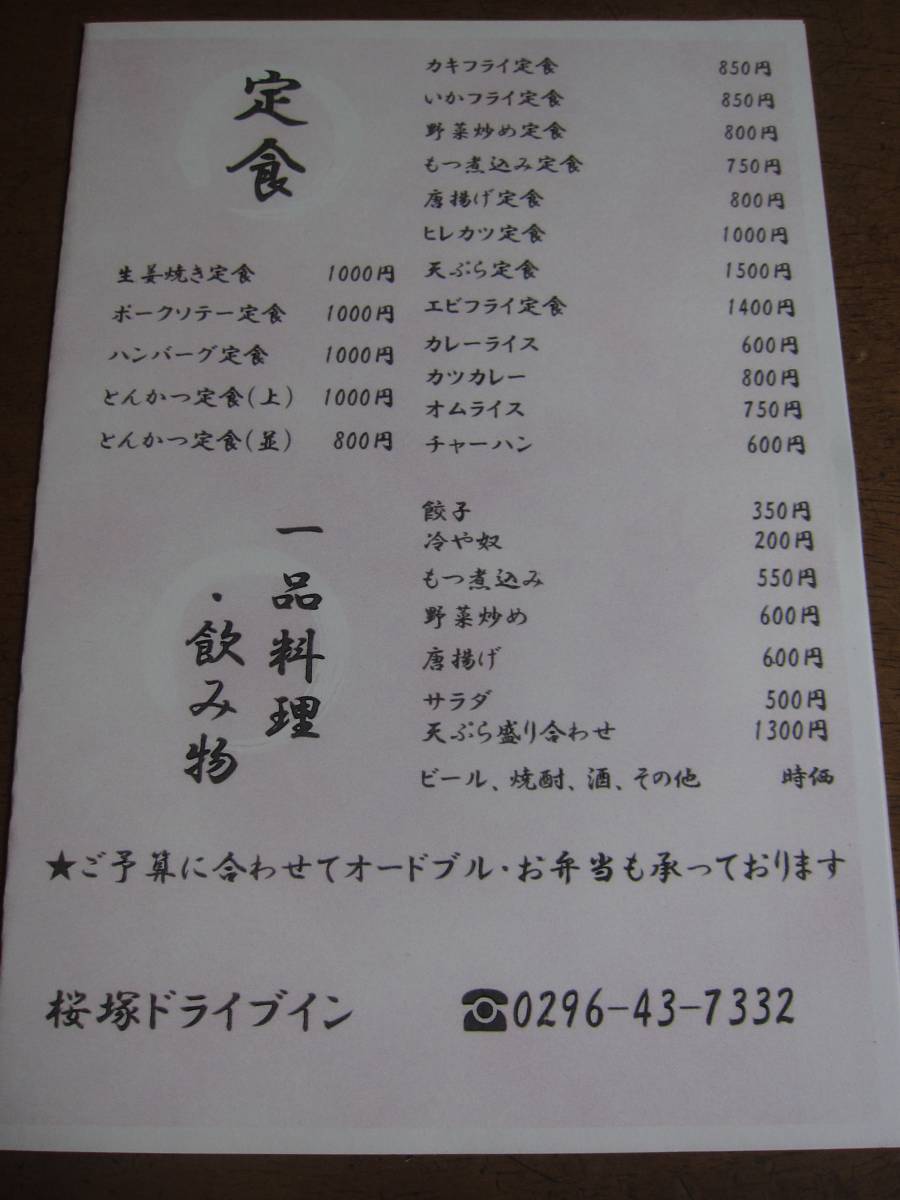 定食
生姜焼き定食 1000円
ポークソテー定食 1000円
ハンバーグ定食 1000円
とんかつ定食(上) 1000円
とんかつ定食(並) 800円
カキフライ定食 850円
いかフライ定食 850円
野菜炒め定食 800円
もつ煮込み定食 750円
唐揚げ定食 800円
ヒレカツ定食 1000円
天ぷら定食 1500円
エビフライ定食 1400円
カレーライス 600円
カツカレー 800円
オムライス 750円
チャーハン 600円
一品料理
・飲み物
餃子 350円
冷や奴 200円
もつ煮込み 550円
野菜炒め 600円
唐揚げ 600円
サラダ 500円
天ぷら盛り合わせ 1300円
ビール、焼酎、酒、その他 時価
★ご予算に合わせてオードブル・お弁当も承っております
桜塚ドライブイン ☎0296-43-7332